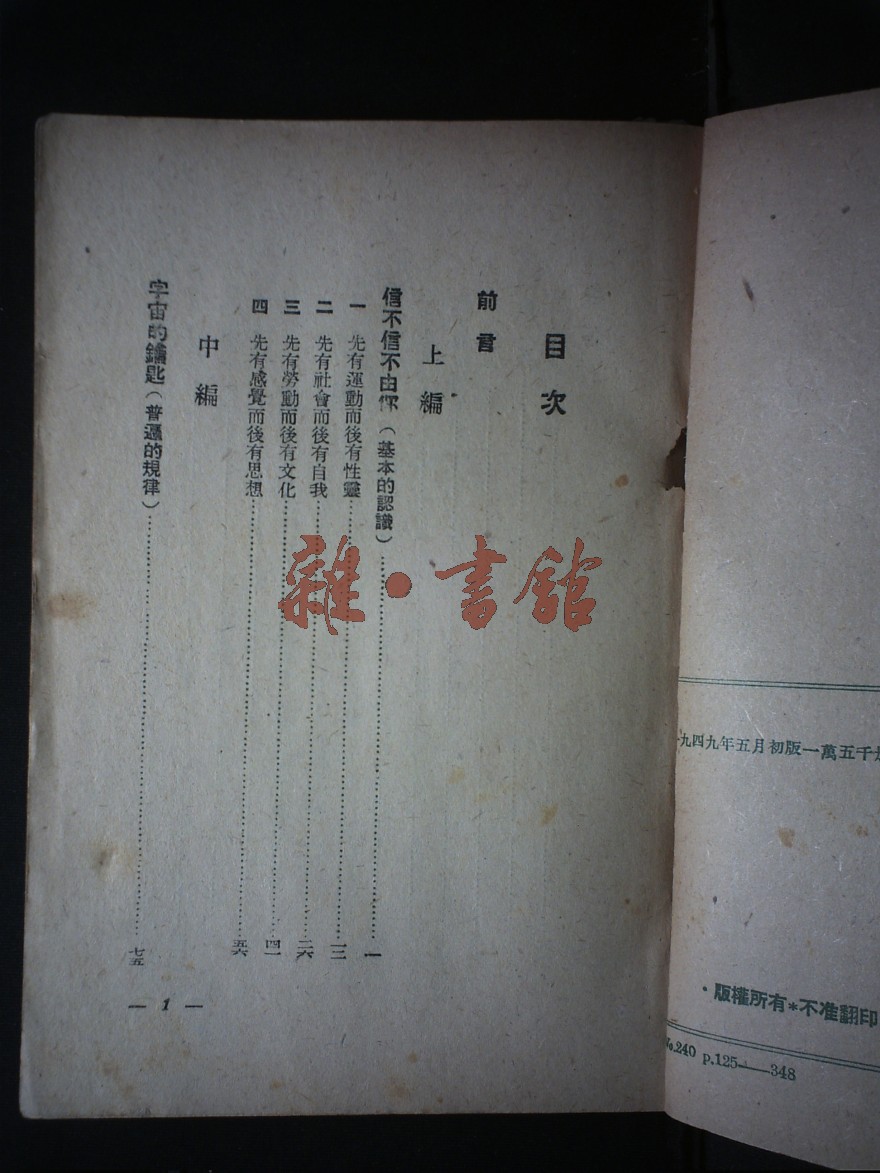 目次
前言
上編
信不信不由你（基本的認識）……一
一 先有運動而後有性靈……一二
二 先有社會而後有自我……二六
三 先有勞動而後有文化……四一
四 先有感覺而後有思想……五六
中編
宇宙的鑰匙（普遍的規律）……七五
— 1 —
一九四九年五月初版一萬五千
·版權所有*不准翻印
No.240 p.125——348
雜·書館